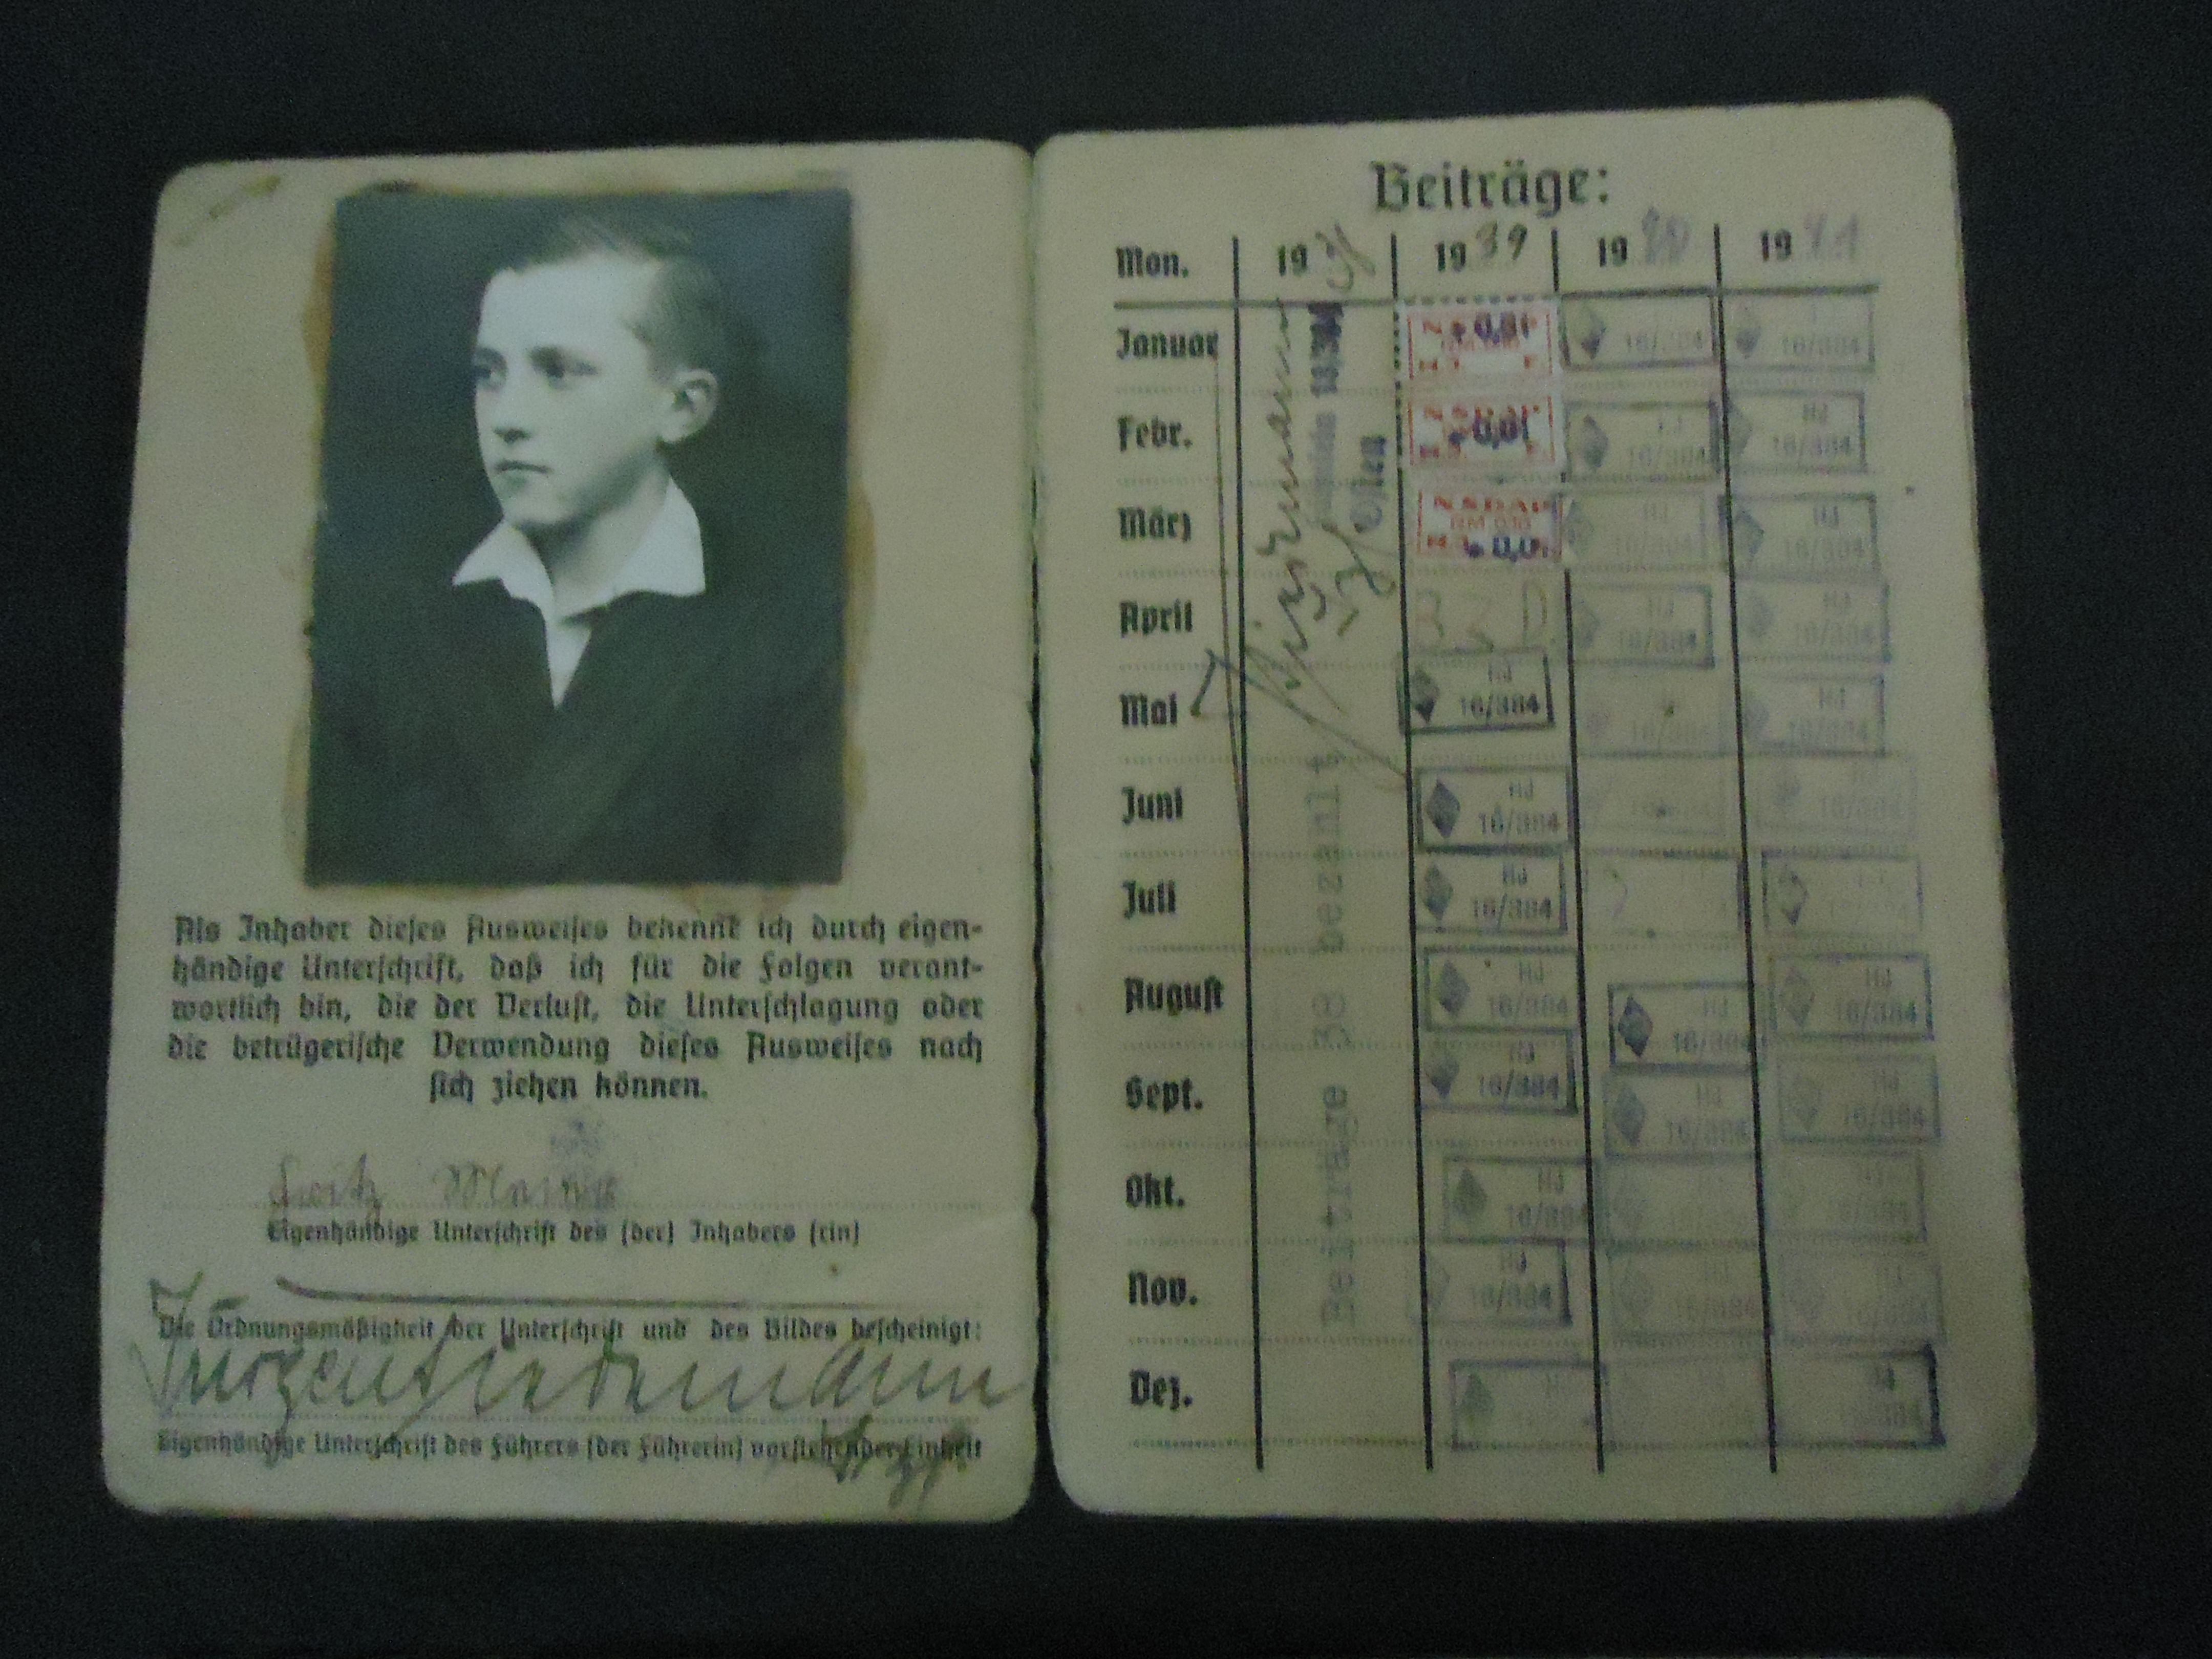 Als Inhaber dieses Ausweises bekenne ich durch eigen-
händige Unterschrift, daß ich für die Folgen verant-
wortlich bin, die der Verlust, die Unterschlagung oder
die betrügerische Verwendung dieses Ausweises nach
sich ziehen können.
Fritz
Eigenhändige Unterschrift des (der) Inhabers (rin)
Die Ordnungsmäßigkeit der Unterschrift und des Bildes bescheinigt:
Jürgen Siedemann
Eigenhändige Unterschrift des Führers (der Führerin) vorstehender Einheit
Beiträge:
Mon. 19 1939 1940 1941
Januar 16/384 16/384
Febr. 16/384 HJ 16/384
März NSDAP HJ 16/384 HJ 16/384
April HJ 16/384 HJ 16/384
Mai HJ 16/384 16/384 HJ 16/384
Juni HJ 16/384 16/384 16/384
Juli HJ 16/384
August HJ 16/384 HJ 16/384 HJ 16/384
Sept. HJ 16/384 HJ 16/384 HJ 16/384
Okt. HJ 16/384 16/384
Nov. HJ 16/384 HJ 16/384
Dez.
Beiträge 38 bezahlt